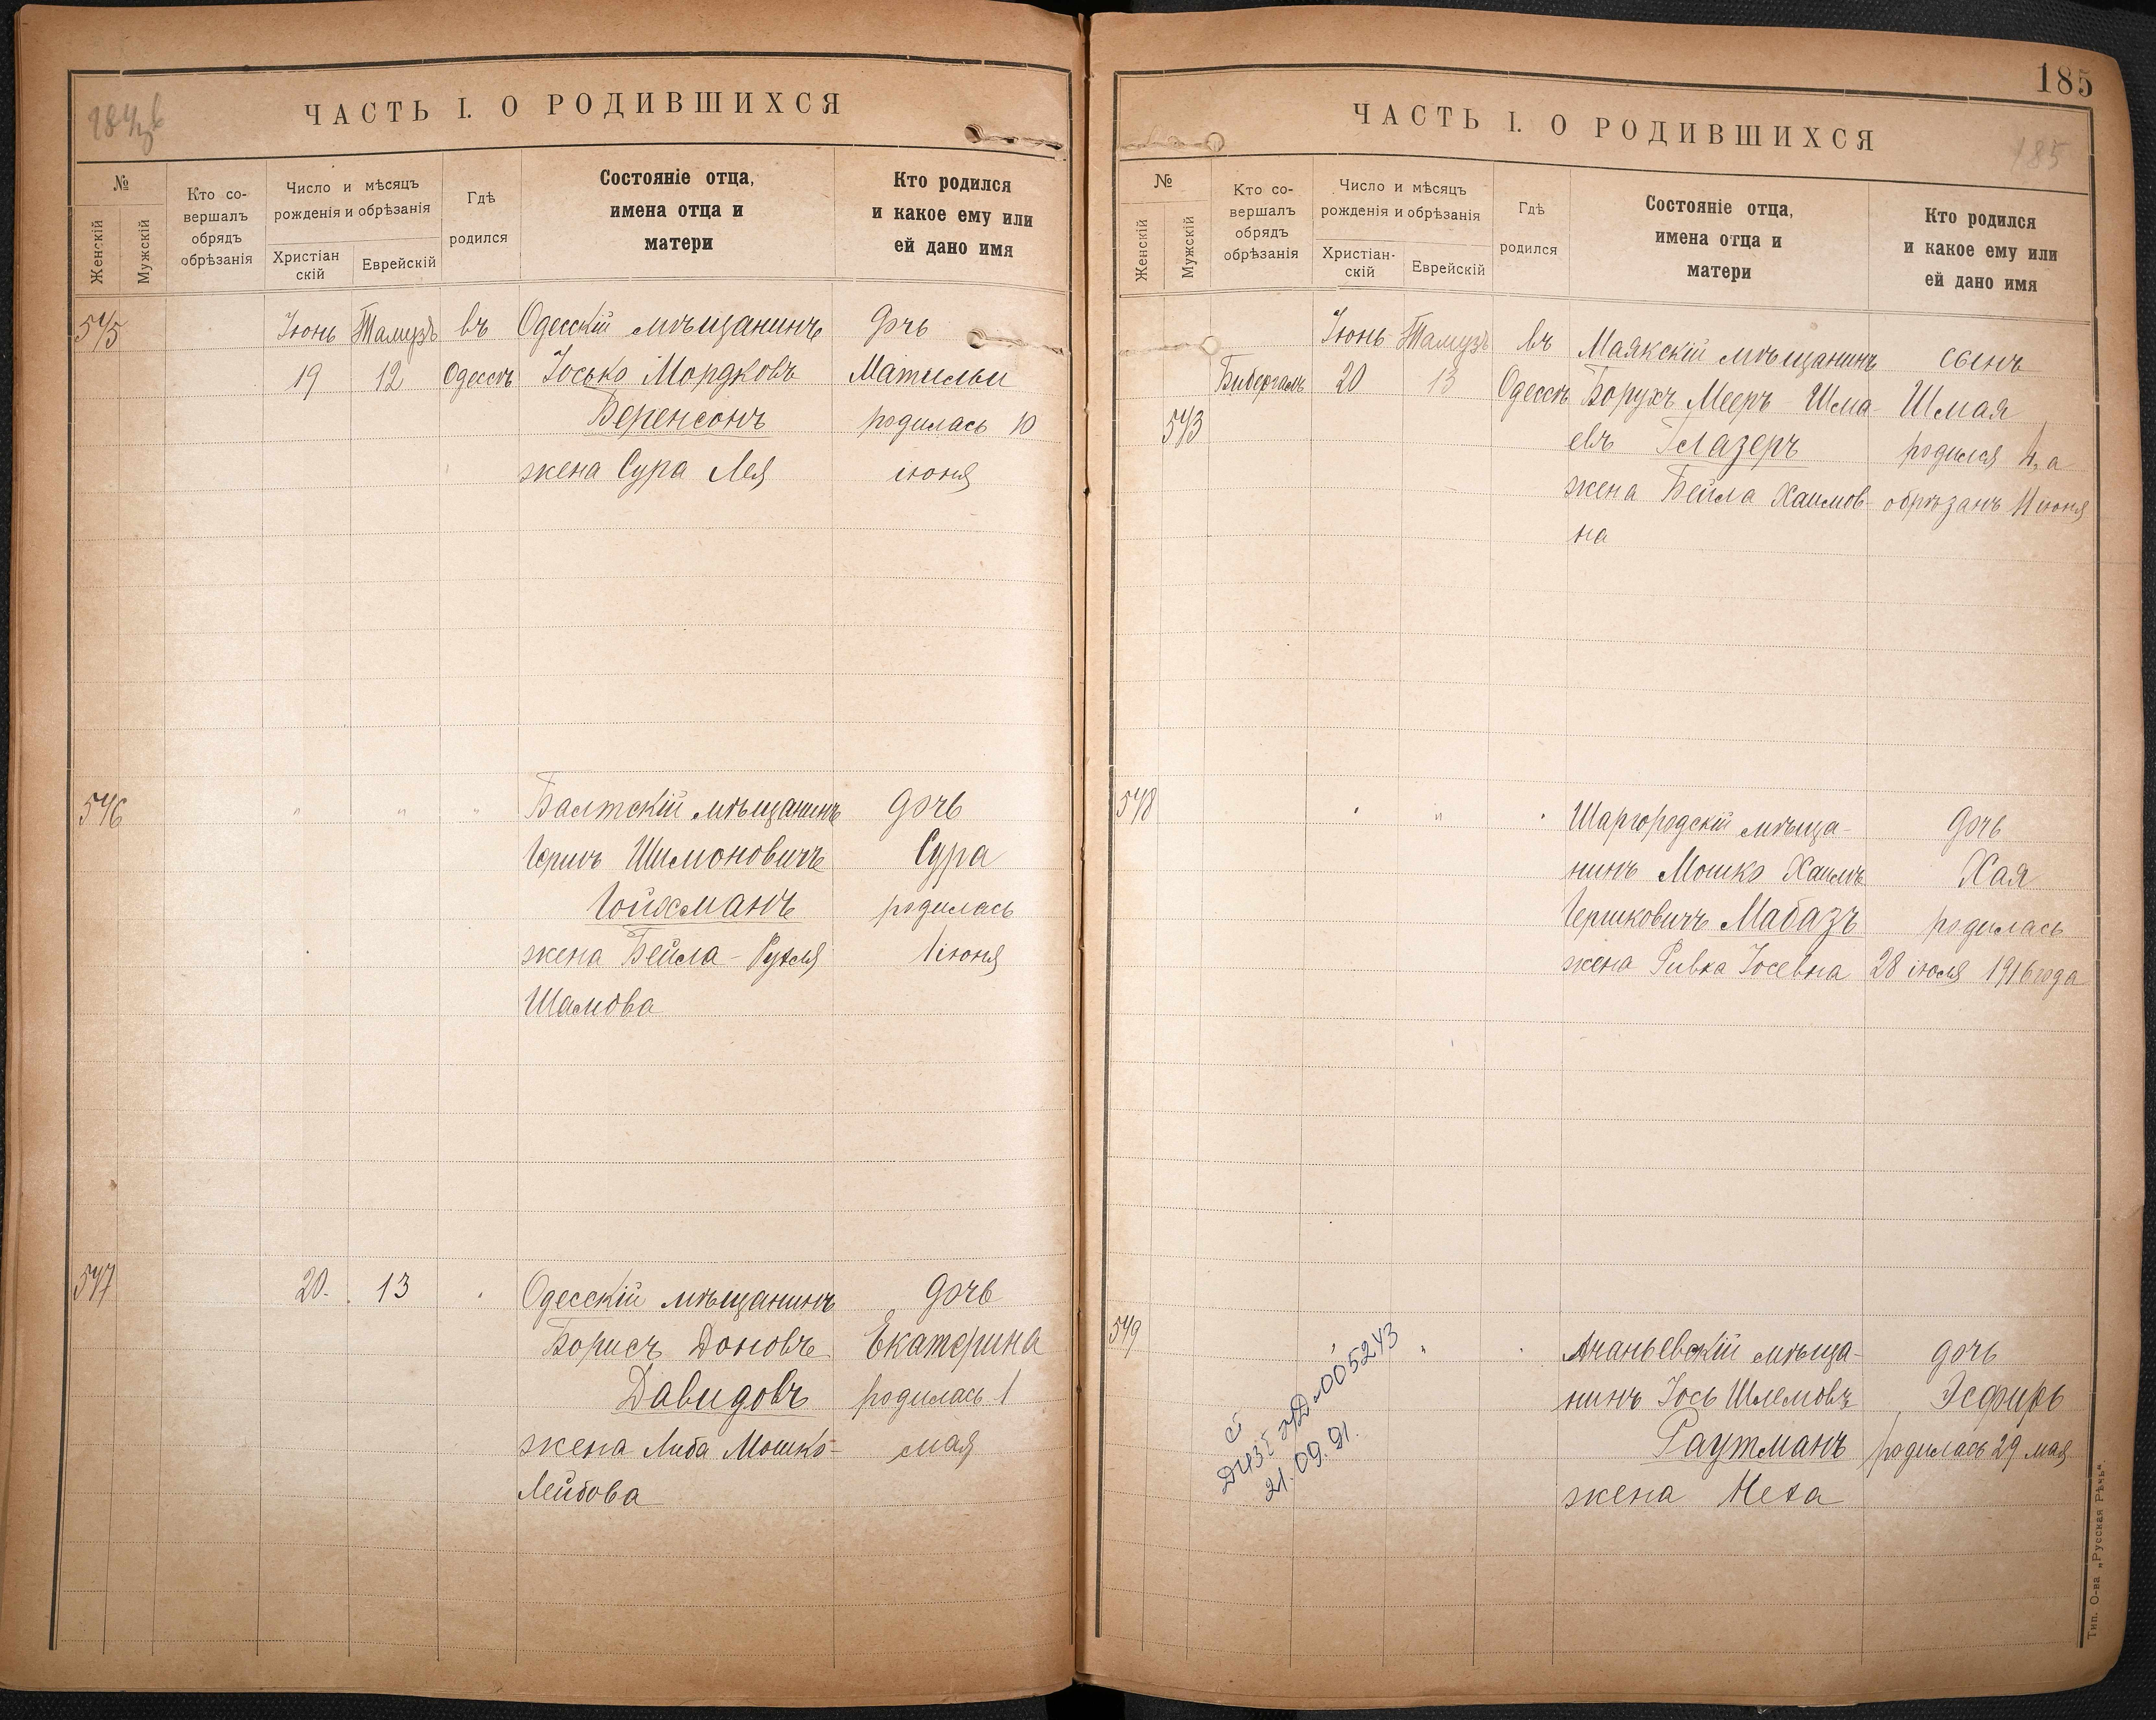 ЧАСТЬ I. О РОДИВШИХСЯ
№
Женскій
Мужскій
Кто со-
вершалъ
обрядъ
обрѣзанія
Число и мѣсяцъ
рожденія и обрѣзанія
Христіан
скій
Еврейскій
Гдѣ
родился
Состояніе отца,
имена отца и
матери
Кто родился
и какое ему или
ей дано имя
545
Іюнь Тамузъ въ Одесскій мѣщанинъ дочь
19 12 Одессѣ Іосько Мордковъ
Беренсонъ родилась 10
жена Сура Лея іюня
546
" " " Балтскій мѣщанинъ дочь
Шимоновичъ Сура
Гойхманъ родилась
жена Бейла - Рухля 1 іюня
Шамова
547
20. 13 Одесскій мѣщанинъ дочь
Борисъ Доновъ Екатерина
Давидовъ родилась 1
жена Либа Мошко- мая
Лейбова
185
ЧАСТЬ I. О РОДИВШИХСЯ
185
№
Женскій
Мужскій
Кто со-
вершалъ
обрядъ
обрѣзанія
Число и мѣсяцъ
рожденія и обрѣзанія
Христіан-
скій
Еврейскій
Гдѣ
родился
Состояніе отца,
имена отца и
матери
Кто родился
и какое ему или
ей дано имя
Іюнь Тамузъ въ Маякскій мѣщанинъ сынъ
Бибергалъ 20 13 Одессѣ Борухъ Мееръ Шма- Шмая
543
евъ Глазеръ родился 4, а
жена Бейла Хаимов- обрѣзанъ 11 іюня
на
548
" Шаргородскій мѣща- дочь
нинъ Мошко Хаимъ Хая
Гершковичъ Мабазъ родилась
жена Ривка Іосевна 28 іюля 1916 года
549
" Ананьевскій мѣща- дочь
нинъ Іось Шлемовъ Эсфирь
Раутманъ родилась 29 мая
жена Неха
005243
21.09.91.
Тип. О-ва „Русская Рѣчь“